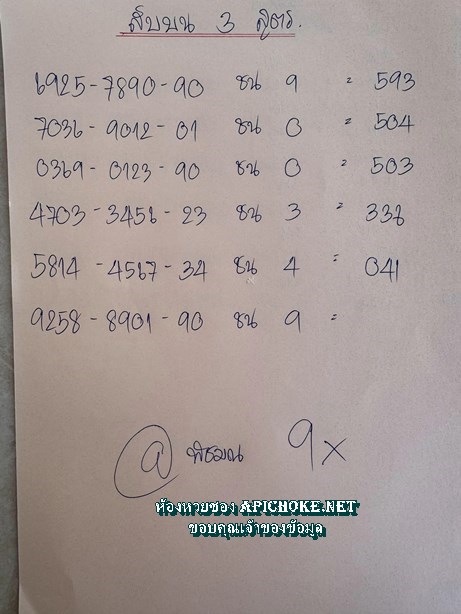 สิบบน 3 สูตร.
6925-7890-90 ชน 9 = 593
7036-9012-01 ชน 0 = 504
0369-0123-90 ชน 0 = 503
4703-3456-23 ชน 3 = 338
5814-4567-34 ชน 4 = 041
9258-8901-90 ชน 9 =
@ พิรมณ 9x
ห้องหวยซอง APICHOKE.NET
ขอบคุณเจ้าของข้อมูล